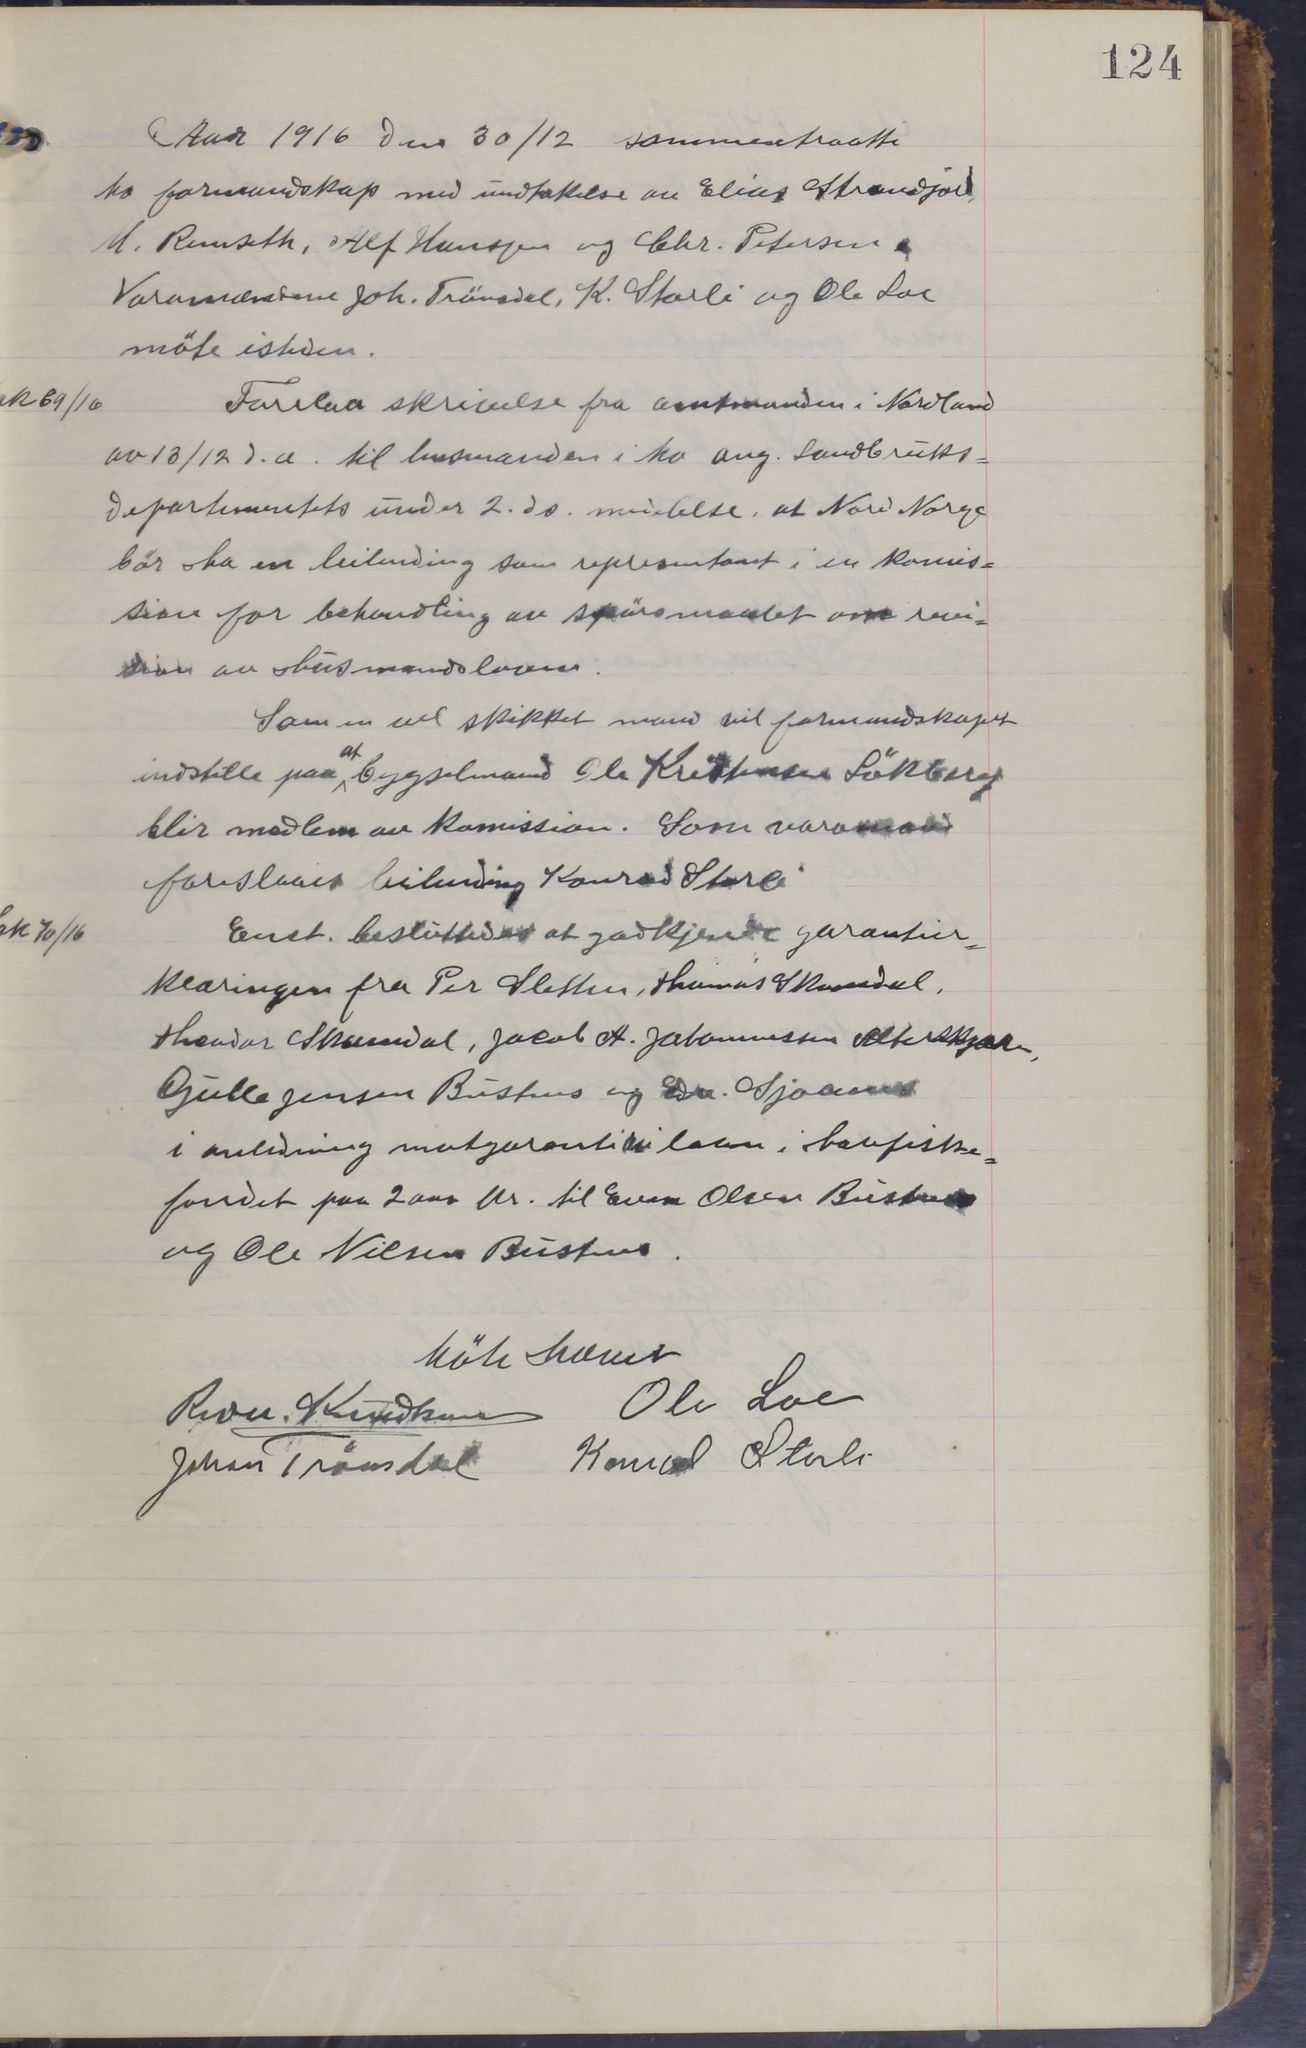 124
Aar 1916 den 30/12 sammentraatte
Mo formandskap med undtakelse av Elias Strandjord,
M. Remseth, Alf Hanssen og Chr. Petersen.
Varamændene Joh. Trönsdal, K. Storli og Ole Loe
möte isteden.
ak 69/16 Forelaa skrivelse fra amtmanden i Nordland
av 13/12 d. a. til husmanden i Mo ang. Landbruks=
departementets under 2. ds. meddelelse, at Nord Norge
bör ha en leilending som representant i en komis=
sion for behandling av spörsmaalet om revi=
sion av husmandsloven.
Som en vel skikket mand vil formandskapet
indstille paa at bygselmand Ole Kristensen Sökberg
blir medlem av komission. Som varamand
foreslaaes leilending Konrad Storli
ak 70/16 Enst. besluttedes at godkjende garantier=
klæringen fra Per Sletten, Thomas Skamdal,
Theodor Skamdal, Jacob A. Johannessen Alterskjær,
Gulle Jensen Bustnes og Edv. Sjoanes
i anledning motgaranti laan i havfiske=
fondet paa 2000 kr. til Even Olsen Bustnes
og Ole Nilsen Bustnes.
Möte hævet
Knudsen Ole Loe
Johan Trönsdal Konrad Storli